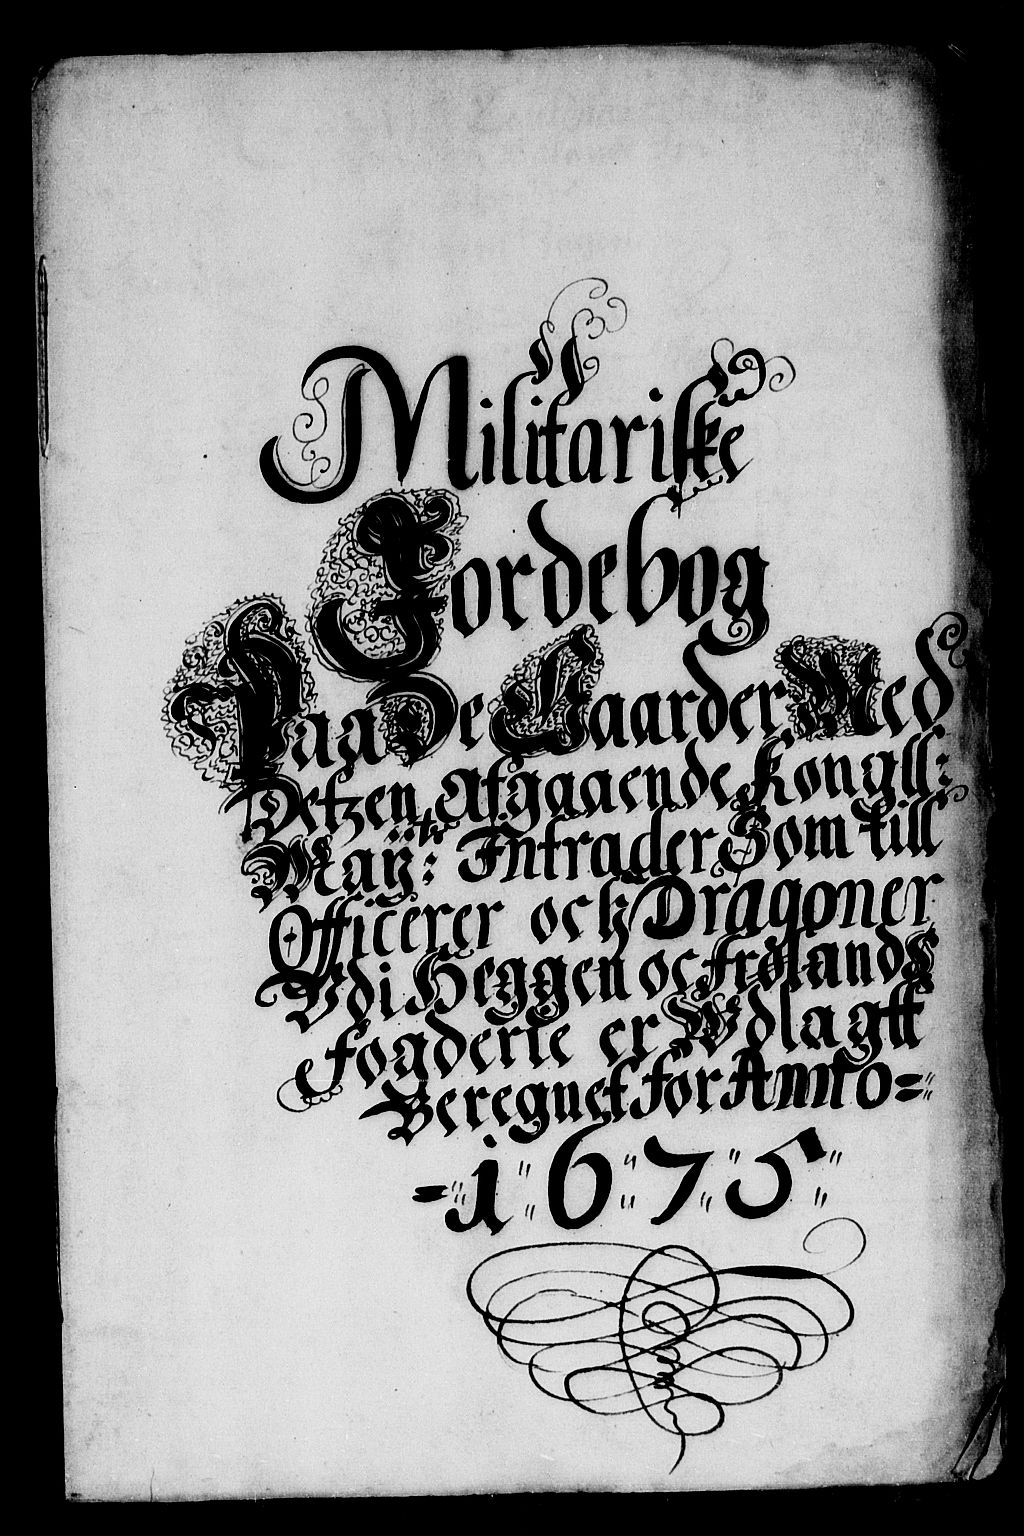 Militariske
Jordebog
Paa De Gaarder Med
Detzen Afgaaende Kongll:
Maÿ:tz Intrader Som till
Officerer och Dragoner
Vdi Heggen oc frølands
fogderie er Wdlagtt
Beregnet for Anno=
-1675